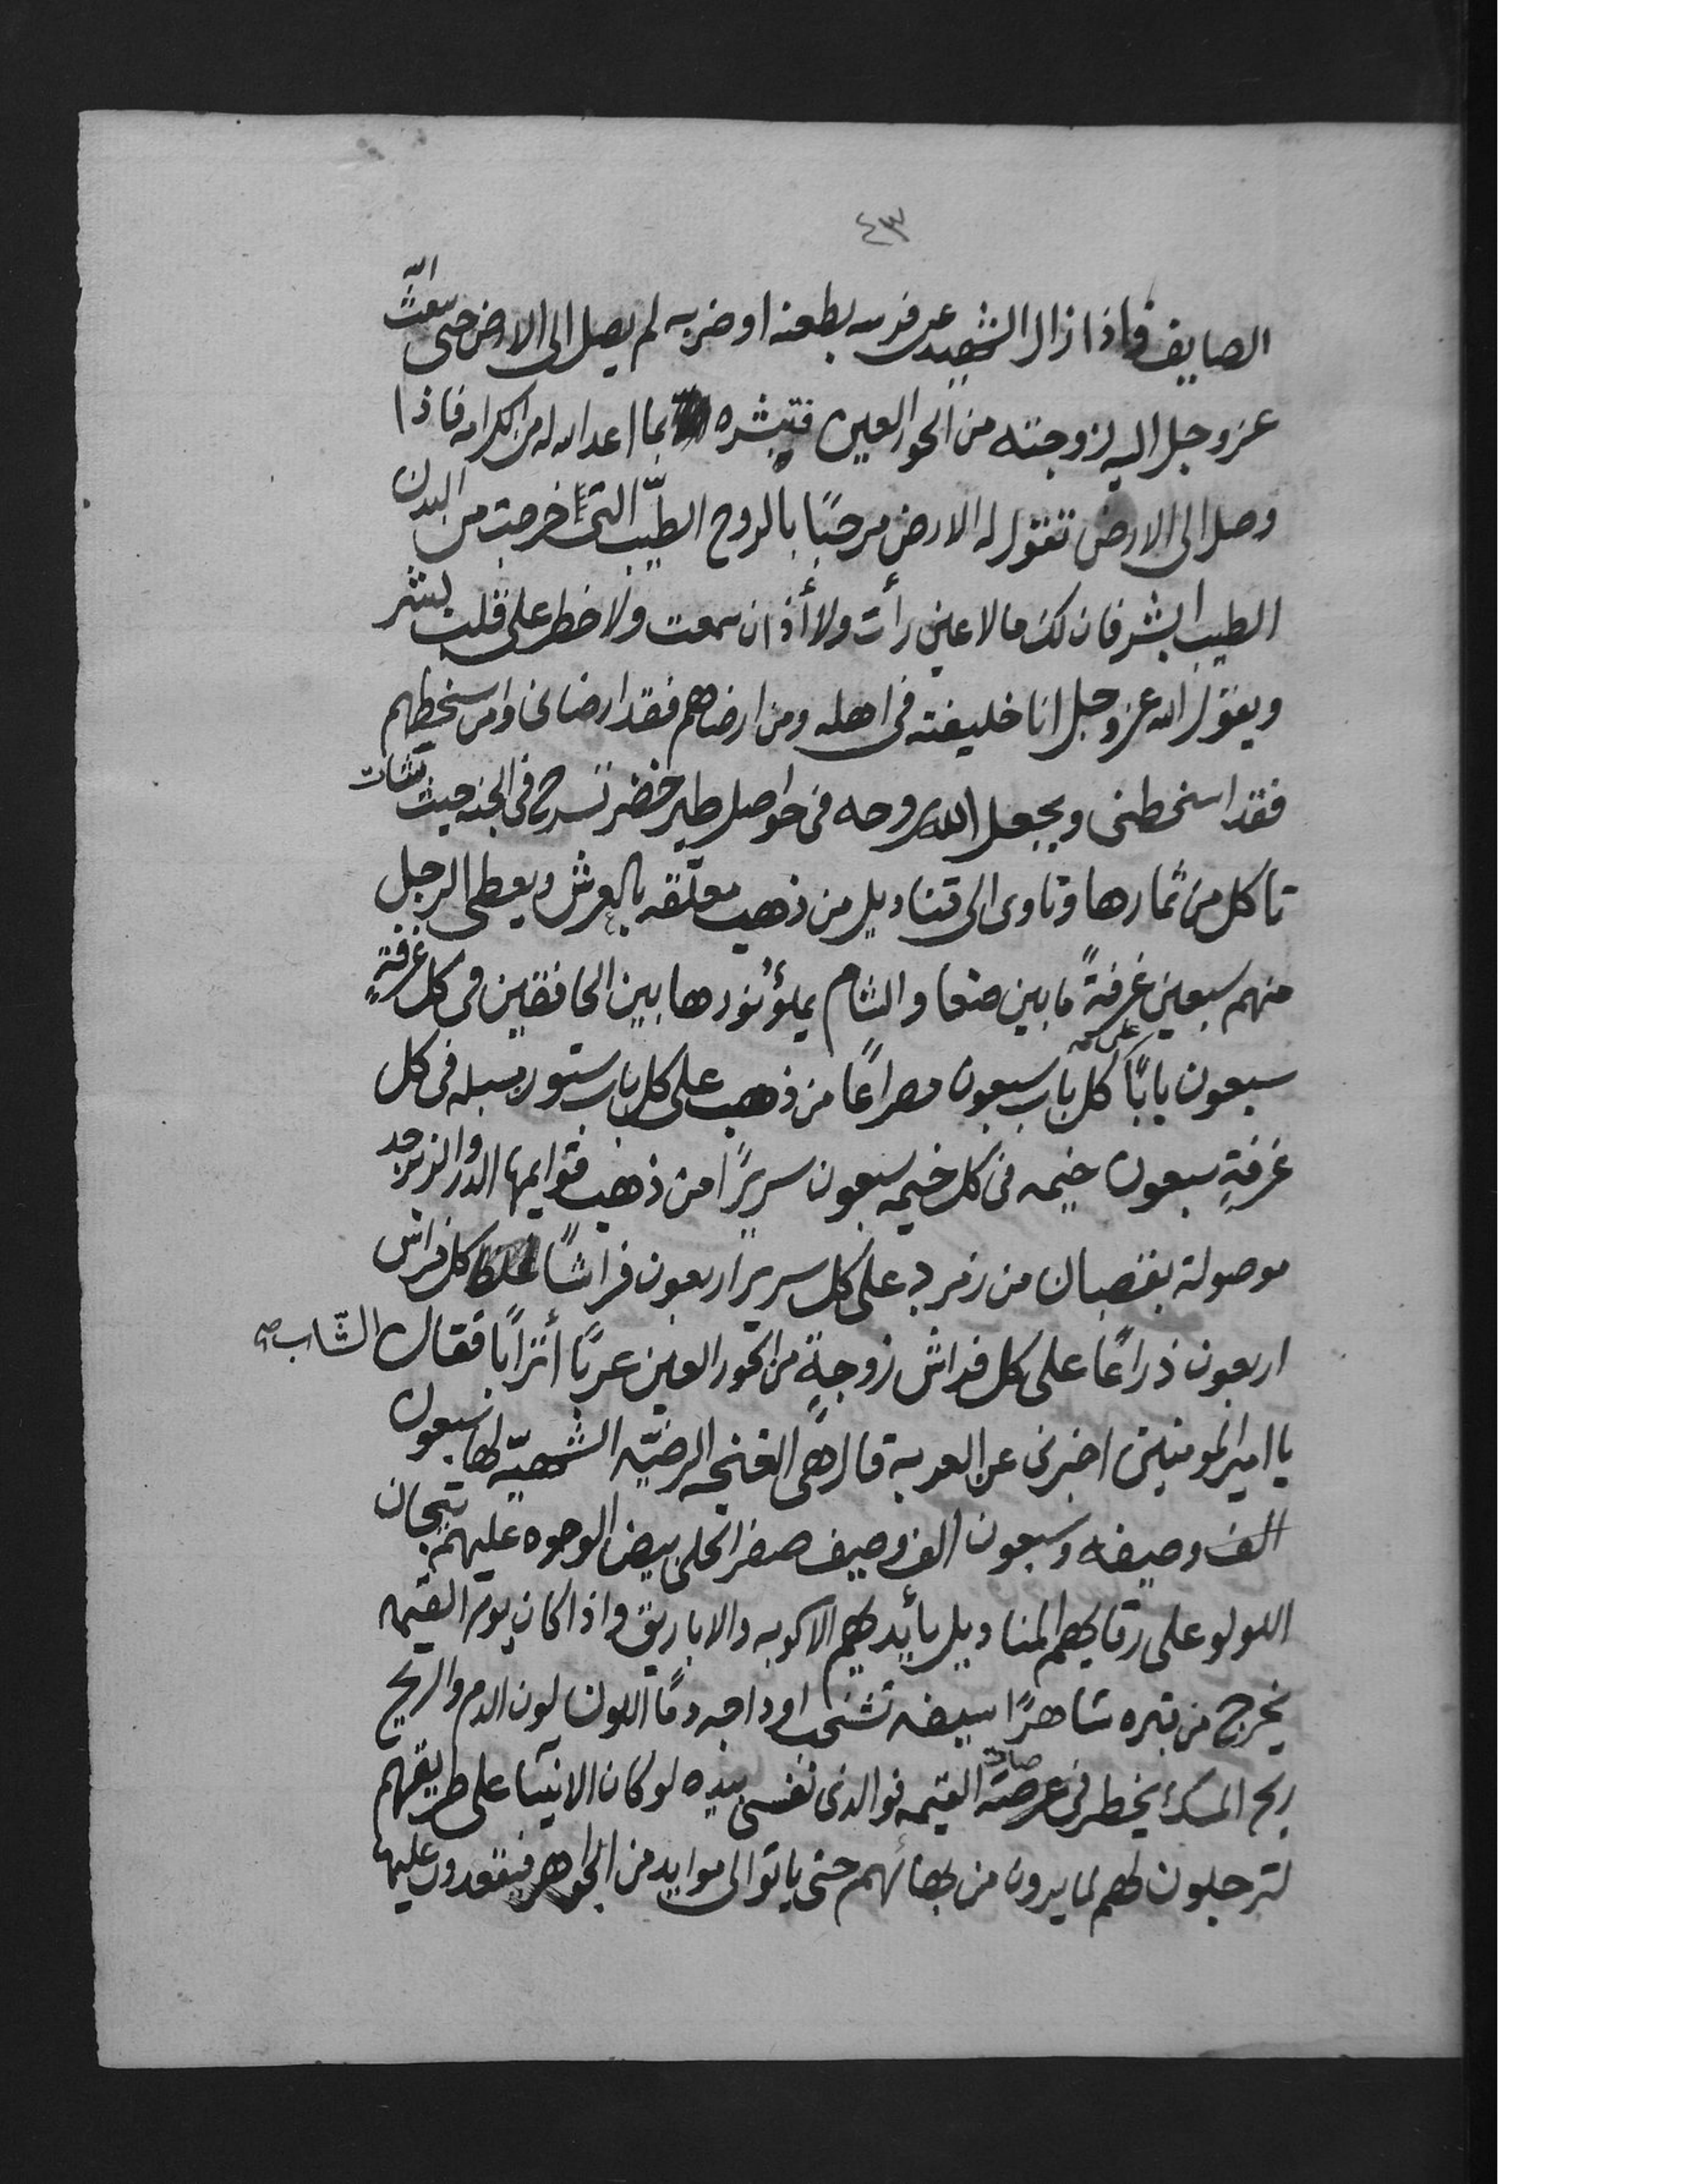 ٤٣
الصايف فاذا زال الشهيد عن فرسه بطعنه او ضربه لم يصل الى الارض حتى يبعث الله
عز وجل اليه زوجته من الحور العين فتبشره بما اعد الله له من الكرامه فاذا
وصل الى الارض تقول له الارض مرحبًا بالروح الطيّب التى اخرجت من البدن
الطيب ابشر فان لك ما لا عين رأت ولا أذن سمعت ولا خطر على قلب بشر
ويقول الله عز وجل انا خليفته فى اهله ومن ارضاهم فقد ارضانى ومن اسخطهم
فقد اسخطنى ويجعل الله روحه فى حواصل طير خضر تسرح فى الجنه حيث تشات
تاكل من ثمارها وتاوى الى قناديل من ذهب معلّقه بالعرش ويعطى الرجل
منهم سبعين غرفةً ما بين صنعا والشام يملؤ نورها بين الخافقين فى كل غرفةٍ
سبعون بابًا على كل باب سبعون مصراعًا من ذهب على كل باب ستور مسبله فى كل
غرفةٍ سبعون خيمه فى كل خيمه سبعون سريرًا من ذهب قوايمها الدر والزبرجد
موصولة بقضبان من زمرد على كل سرير اربعون فراشًا غلظ كل فراش
اربعون ذراعًا على كل فراش زوجةٍ من الحور العين عربًا أترابًا فقال الشّاب
يا امير المومنين اخبرنى عن العربه قال هى الغنجه الرضيّه الشهيّه لها سبعون
الف وصيفه وسبعون الف وصيف صفر الحلى بيض الوجوه عليهم تيجان
اللولو على رقابهم المناديل بأيديهم الاكوبه والاباريق واذا كان يوم القيمه
يخرج من قبره شاهرًا سيفه تشخب اوداجه دمًا اللون لون الدم والريح
ريح المسك يخطر فى عرصة القيمه فوالذى نفسى بيده لو كان الانبيا على طريقهم
لترجلون لهم لما يرون من بهائهم حتى ياتوا الى موايد من الجواهر فيقعدون عليها